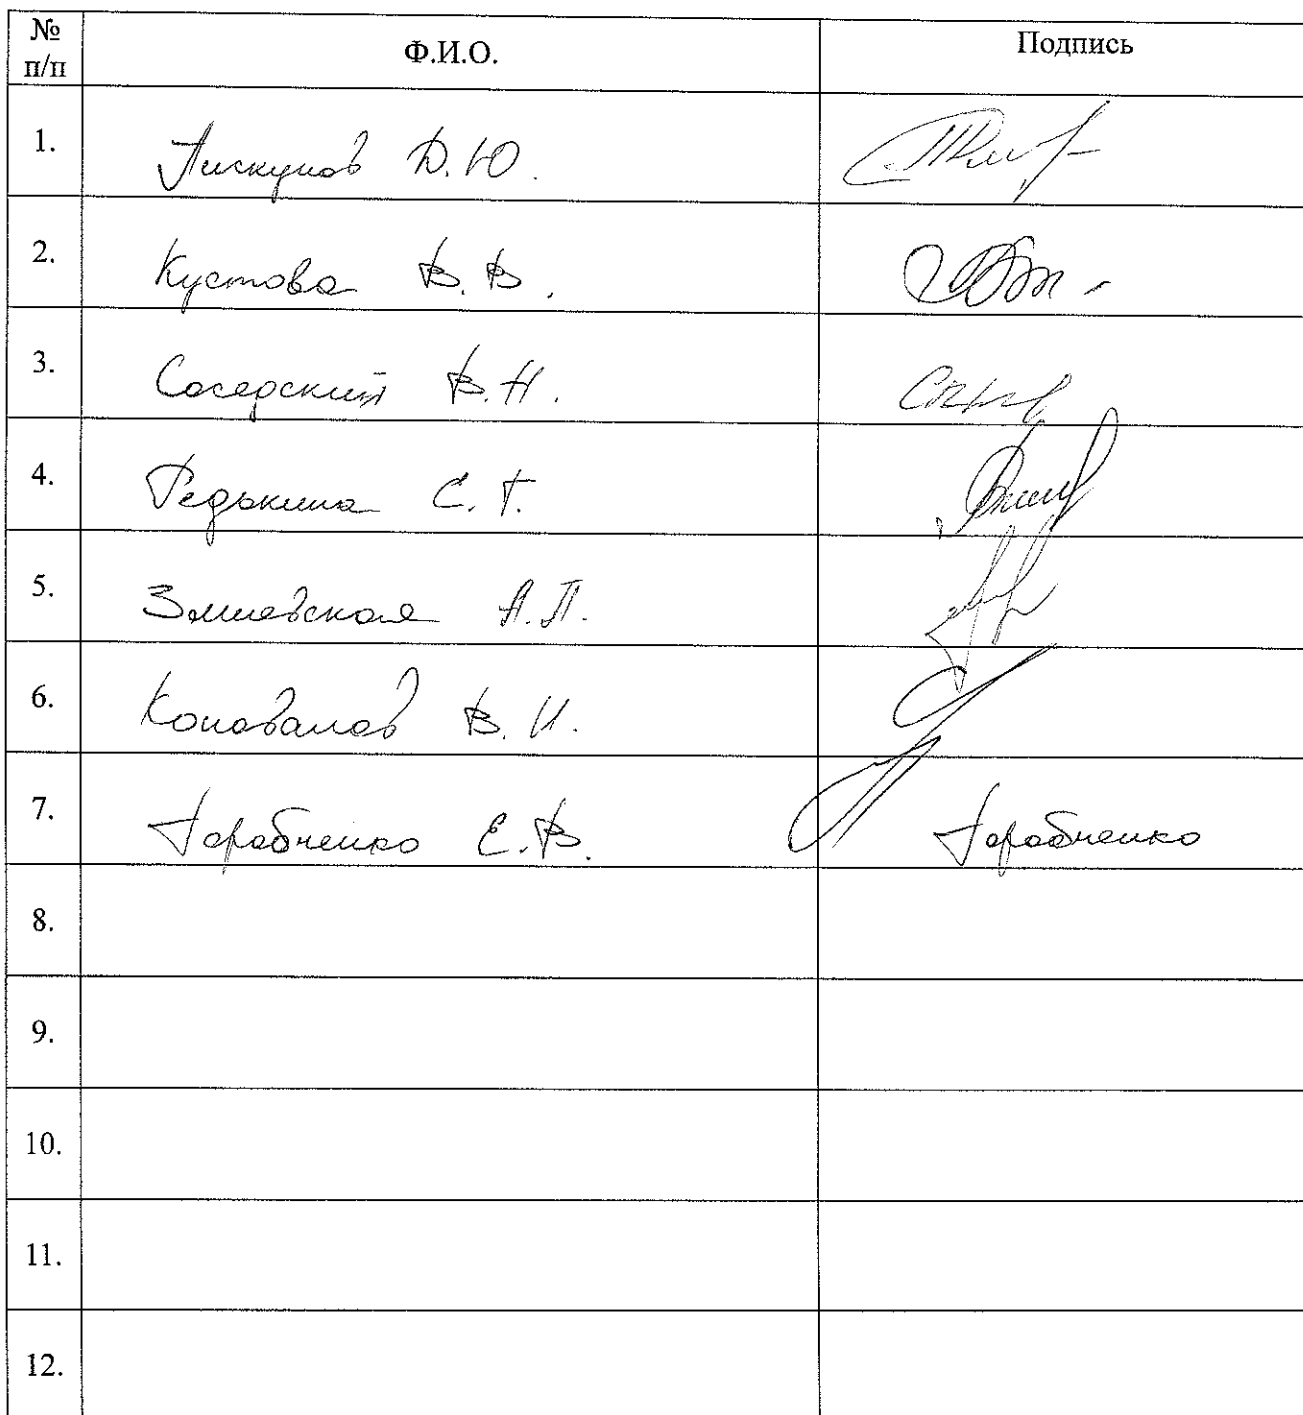 № п/п Ф.И.О. Подпись
1. Пискунов Д.Ю.
2. Кустова В.В.
3. Соседский В.Н.
4. Редькина С.Г.
5. Змиевская А.П.
6. Коновалов В.И.
7. Тарабченко Е.В. Тарабченко
8.
9.
10.
11.
12.